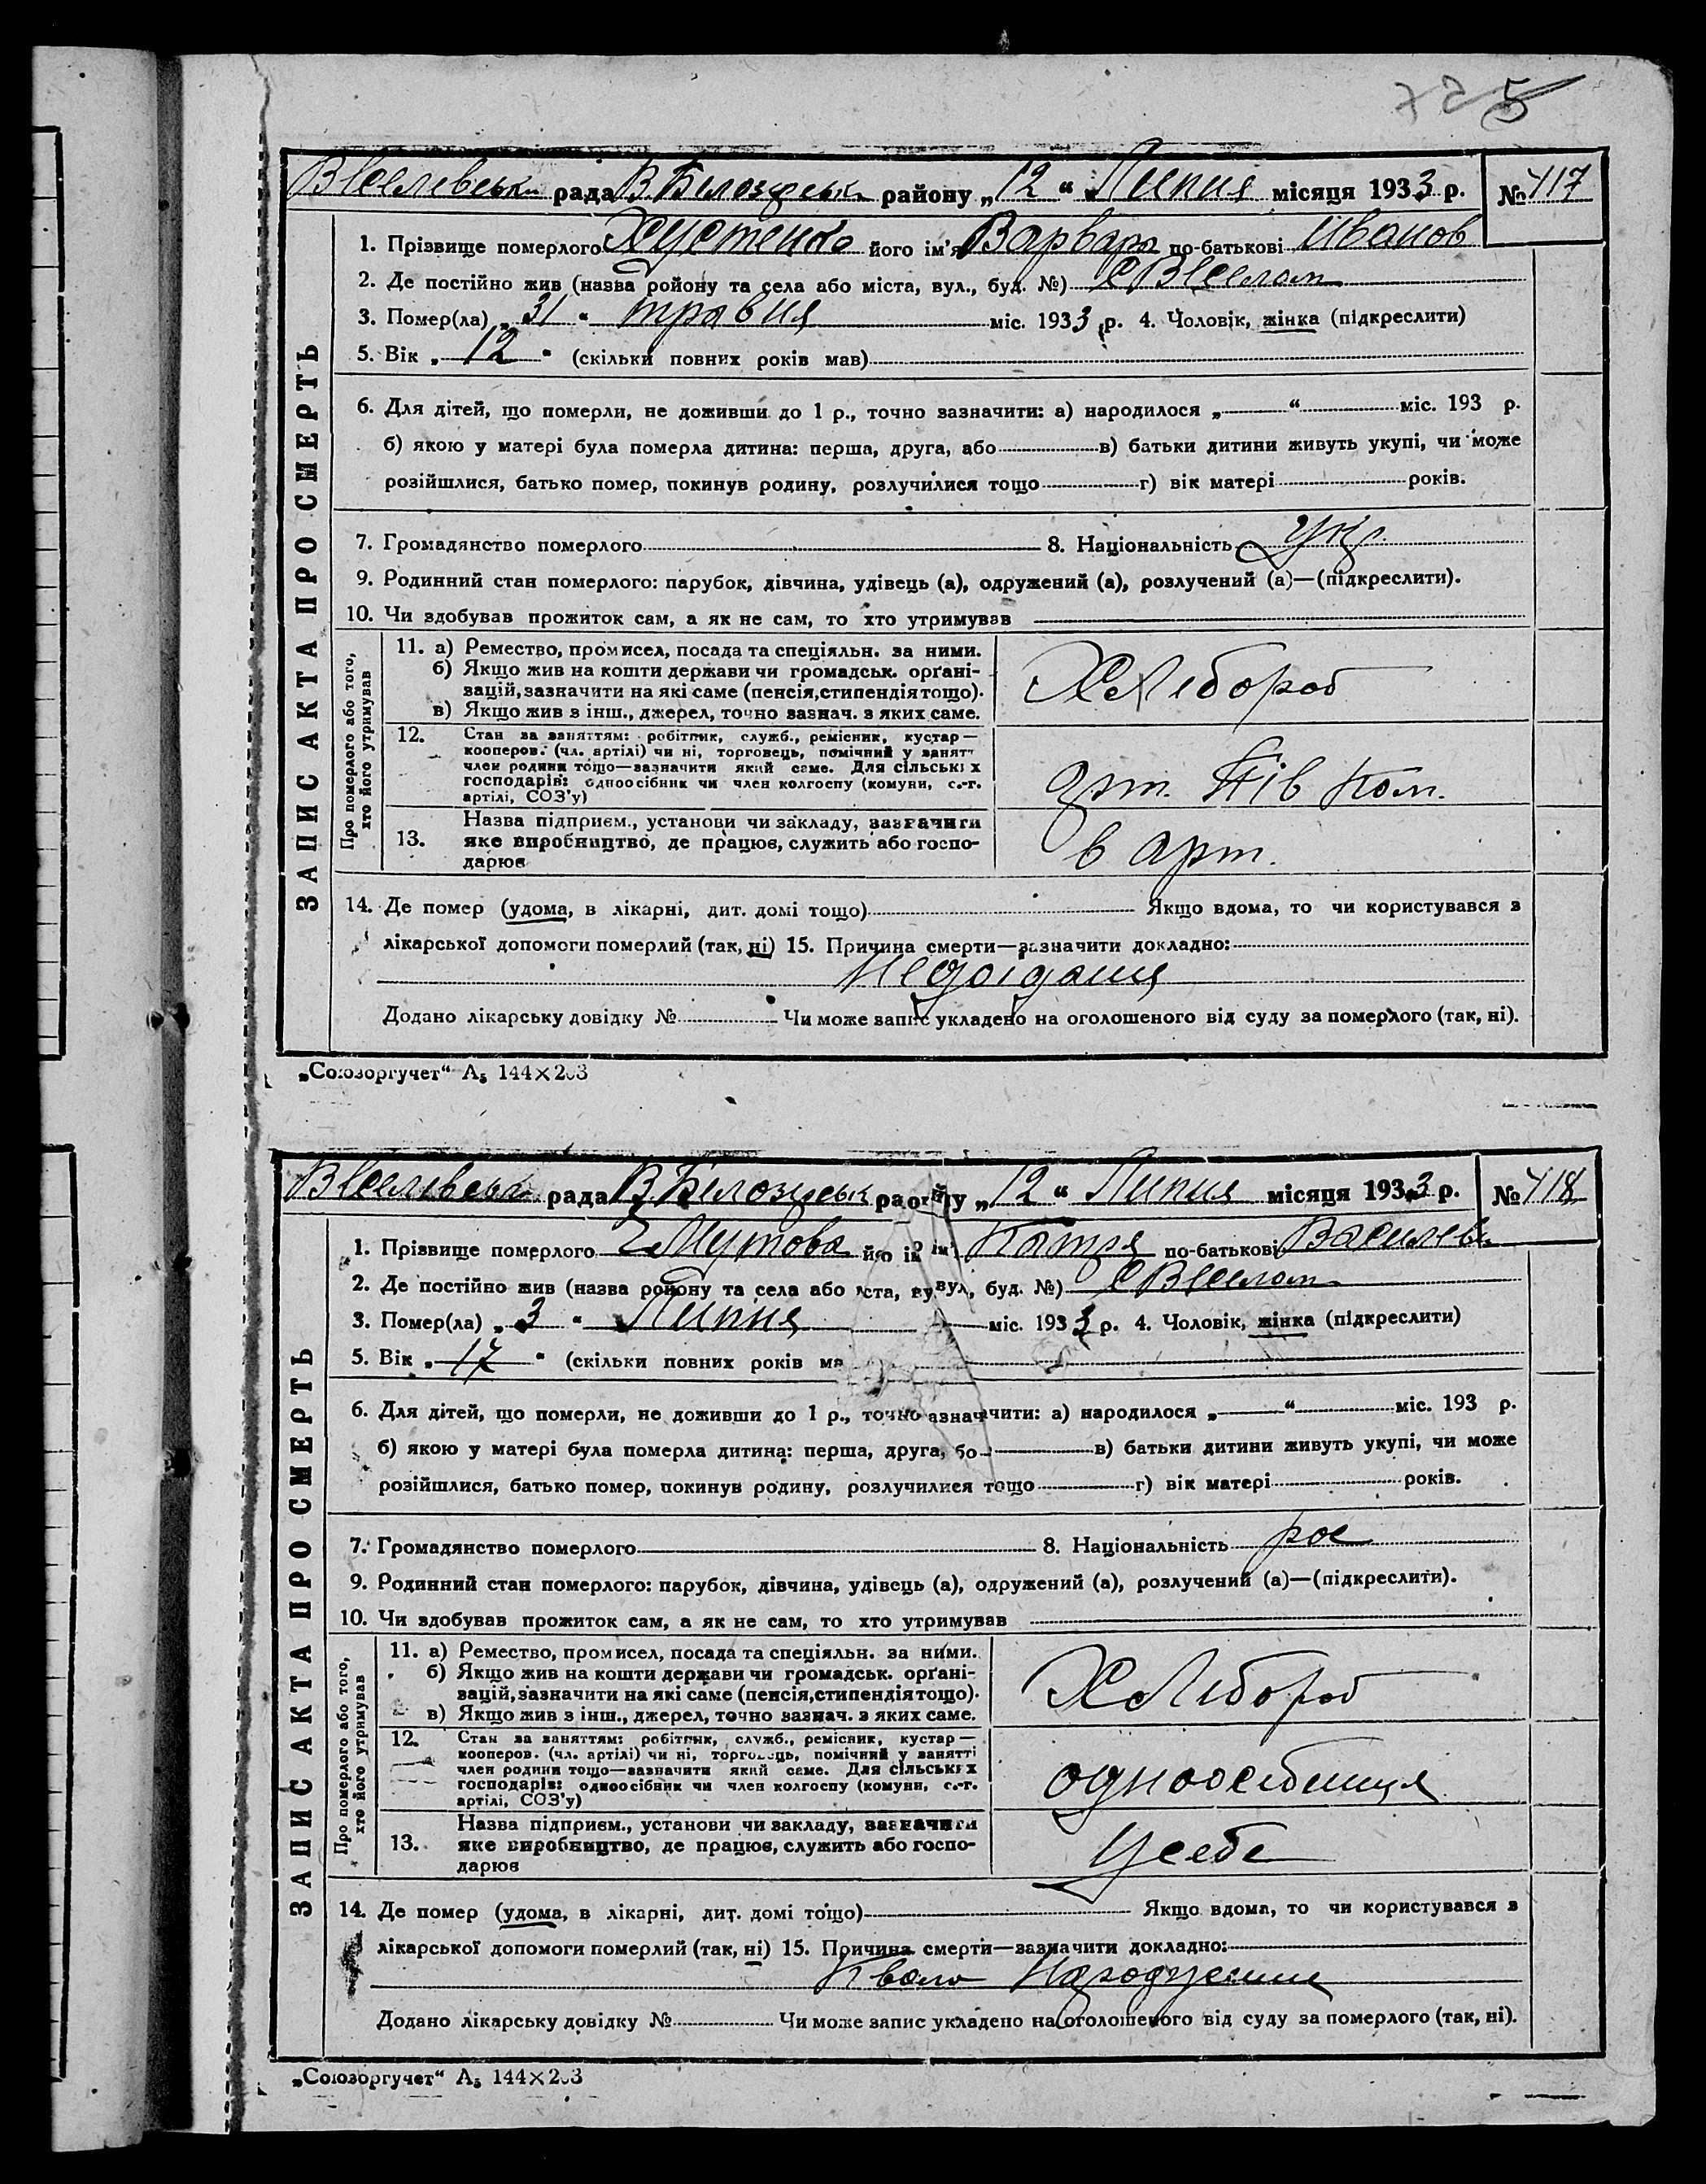 5
Веселівськ рада В. Білозерськ району „12“ Липня місяця 1933 р. № 117
1. Прізвище померлого Хустенко його ім'я Варвара по-батькові Иванов
2. Де постійно жив (назва ройону та села або міста, вул., буд. №) с Веселом
3. Помер(ла) „31“ травня міс. 1933 р. 4. Чоловік, жінка (підкреслити)
5. Вік „12“ (скільки повних років мав)
6. Для дітей, що померли, не доживши до 1 р., точно зазначити: а) народилося „ “ міс. 193 р.
б) якою у матері була померла дитина: перша, друга, або в) батьки дитини живуть укупі, чи може
розійшлися, батько помер, покинув родину, розлучилися тощо г) вік матері років.
7. Громадянство померлого 8. Національність Укр
9. Родинний стан померлого: парубок, дівчина, удівець (а), одружений (а), розлучений (а)—(підкреслити).
10. Чи здобував прожиток сам, а як не сам, то хто утримував
ЗАПИС АКТА ПРО СМЕРТЬ
Про померлого або того,
хто його утримував
11. а) Ремество, промисел, посада та спеціяльн. за ними.
б) Якщо жив на кошти держави чи громадськ. орґані-
зацій, зазначити на які саме (пенсія, стипендія тощо).
в) Якщо жив з інш., джерел, точно зазнач. з яких саме.
Хлібороб
12. Стан за заняттям: робітник, служб., ремісник, кустар—
кооперов. (чл. артілі) чи ні, торговець, помічний у занятті
член родини тощо—зазначити який саме. Для сільських
господарів: одноосібник чи член колгоспу (комуни, с.-г.
артілі, СОЗ'у)
арт.
13. Назва підприєм., установи чи закладу, зазначити
яке виробництво, де працює, служить або госпо-
дарює
в арт.
14. Де помер (удома, в лікарні, дит. домі тощо) Якщо вдома, то чи користувався з
лікарської допомоги померлий (так, ні) 15. Причина смерти—зазначити докладно:
Недоїдання
Додано лікарську довідку № Чи може запис укладено на оголошеного від суду за померлого (так, ні).
„Союзоргучет“ А5 144×203
Веселівськ рада В. Білозерськ району „12“ Липня місяця 1933 р. № 118
1. Прізвище померлого його ім' Катря по-батькові Васильев
2. Де постійно жив (назва ройону та села або іста, вул., буд. №) с Веселом
3. Помер(ла) „3“ Липня міс. 1933 р. 4. Чоловік, жінка (підкреслити)
5. Вік „17“ (скільки повних років ма
6. Для дітей, що померли, не доживши до 1 р., точно азначити: а) народилося „ “ міс. 193 р.
б) якою у матері була померла дитина: перша, друга, бо в) батьки дитини живуть укупі, чи може
розійшлися, батько помер, покинув родину, розлучилися тощо г) вік матері років.
7. Громадянство померлого 8. Національність рос
9. Родинний стан померлого: парубок, дівчина, удівець (а), одружений (а), розлучений (а)—(підкреслити).
10. Чи здобував прожиток сам, а як не сам, то хто утримував
ЗАПИС АКТА ПРО СМЕРТЬ
Про померлого або того,
хто його утримував
11. а) Ремество, промисел, посада та спеціяльн. за ними.
б) Якщо жив на кошти держави чи громадськ. орґані-
зацій, зазначити на які саме (пенсія, стипендія тощо).
в) Якщо жив з інш., джерел, точно зазнач. з яких саме.
Хлібороб
12. Стан за заняттям: робітник, служб., ремісник, кустар—
кооперов. (чл. артілі) чи ні, торговець, помічний у занятті
член родини тощо—зазначити який саме. Для сільських
господарів: одноосібник чи член колгоспу (комуни, с.-г.
артілі, СОЗ'у)
одноосібниця
13. Назва підприєм., установи чи закладу, зазначити
яке виробництво, де працює, служить або госпо-
дарює
У себе
14. Де помер (удома, в лікарні, дит. домі тощо) Якщо вдома, то чи користувався з
лікарської допомоги померлий (так, ні) 15. Причина смерти—зазначити докладно:
Додано лікарську довідку № Чи може запис укладено на оголошеного від суду за померлого (так, ні).
„Союзоргучет“ А5 144×203